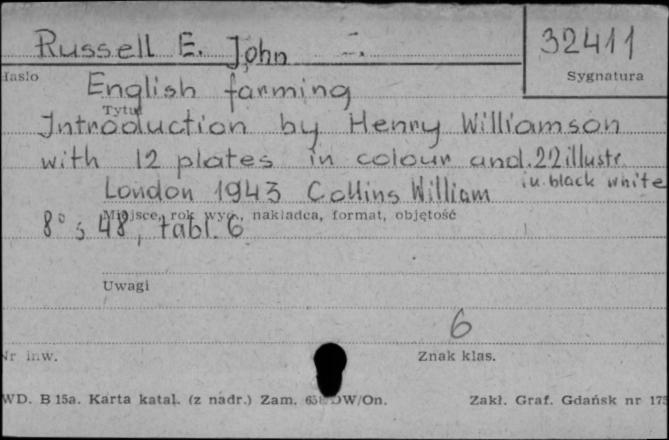 Russell E. John
32411
Hasło
Sygnatura
English farming
Tytuł
Introduction by Henry Williamson
with 12 plates in colour and 22 illustr.
in black white
London 1943 Collins William
Miejsce, rok wyd., nakładca, format, objętość
8° s 48, tabl. 6
Uwagi
6
Nr inw.
Znak klas.
WD. B 15a. Karta katal. (z nadr.) Zam. DW/On.
Zakł. Graf. Gdańsk nr 175